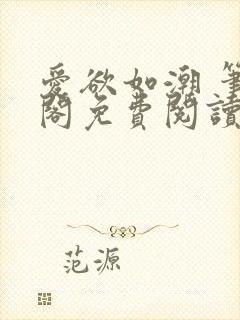 愛欲如潮 筆
閣免費閱讀
范源